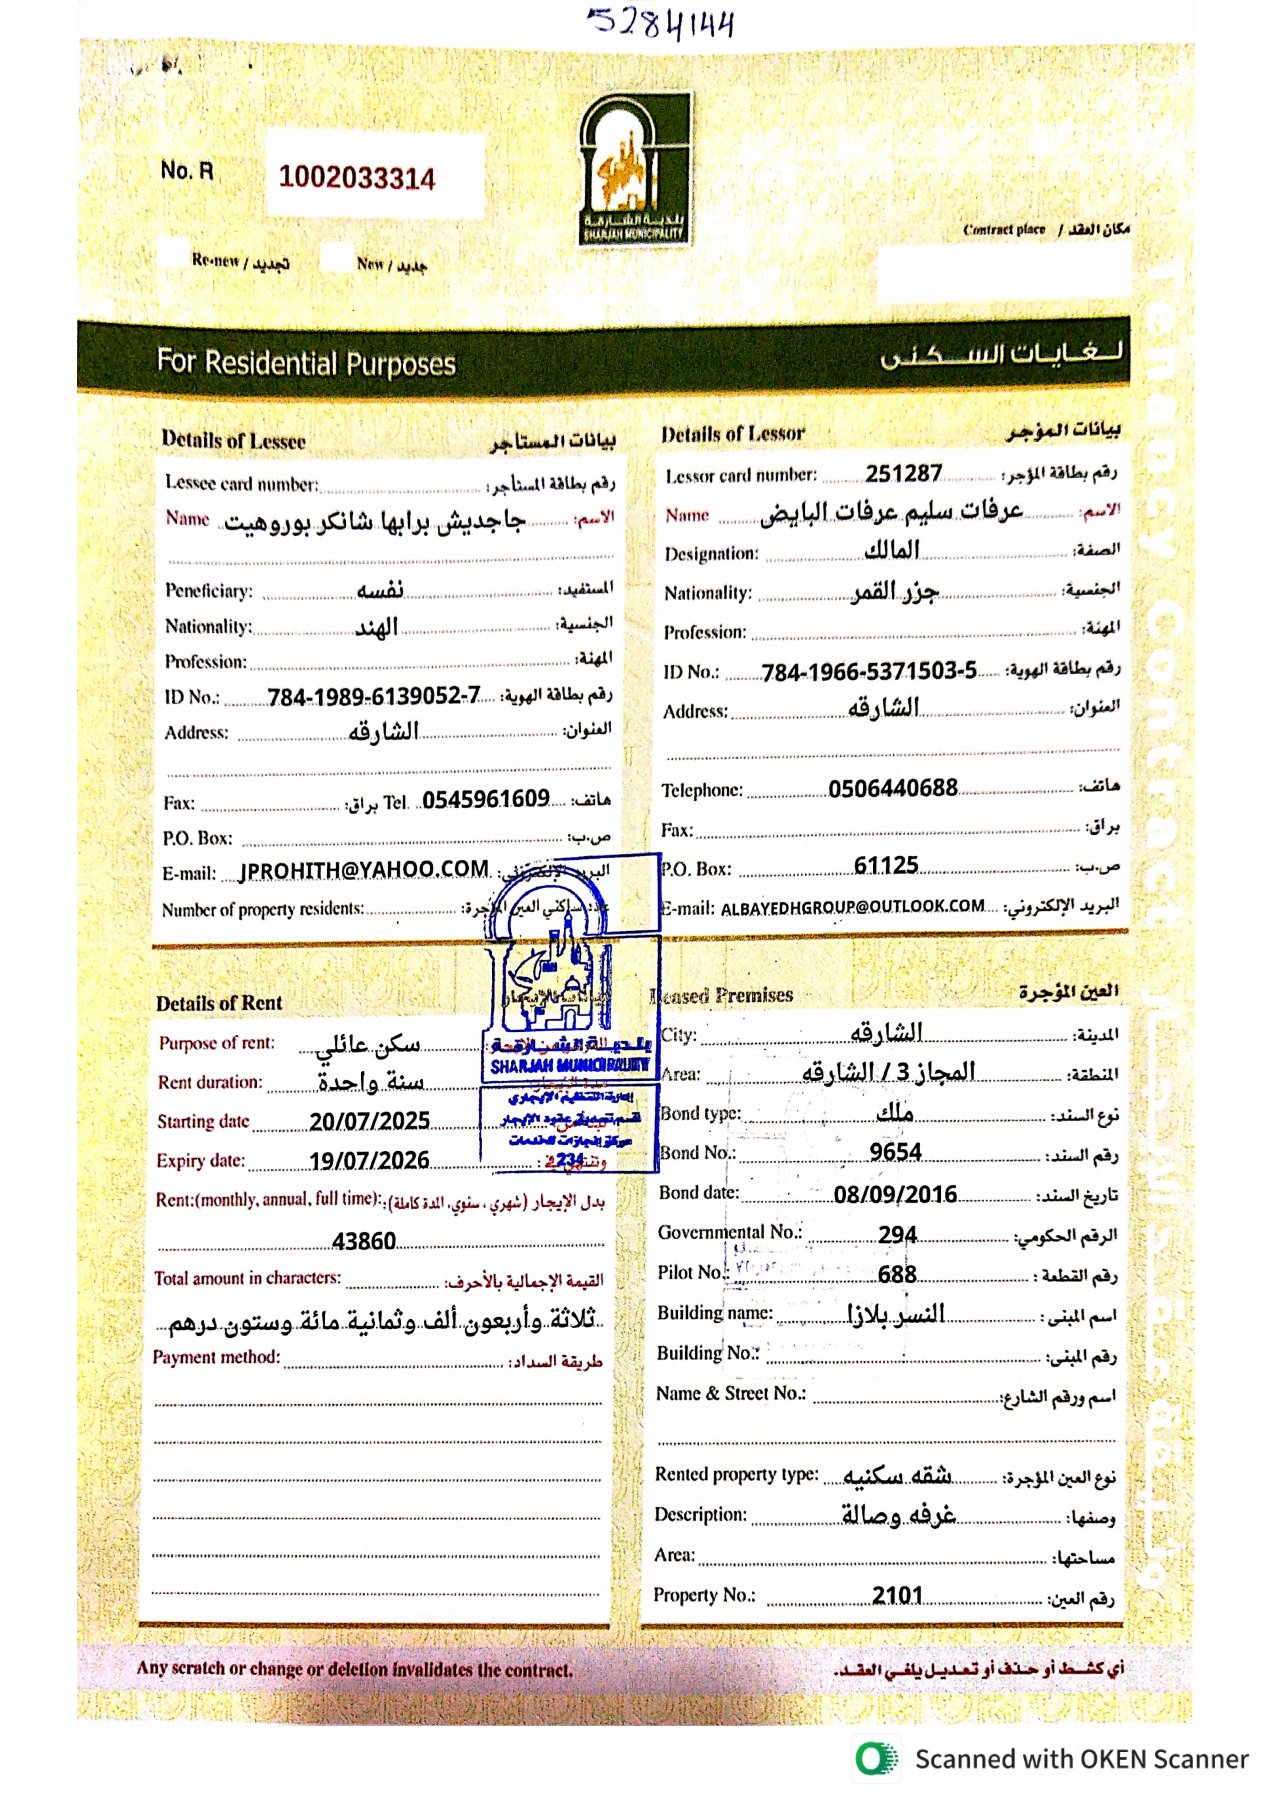 5284144
No. R 1002033314
بلدية الشارقة
SHARJAH MUNICIPALITY
Contract place / مكان العقد
Re-new / تجديد New / جديد
Tenancy Contract
For Residential Purposes لغايات السكنى
Details of Lessee بيانات المستأجر
Lessee card number: رقم بطاقة المستأجر:
Name جاجديش برابها شانكر بوروهيت الاسم:
Peneficiary: نفسه المستفيد:
Nationality: الهند الجنسية:
Profession: المهنة:
ID No.: 784-1989-6139052-7 رقم بطاقة الهوية:
Address: الشارقه العنوان:
Fax: براق: Tel. 0545961609 هاتف:
P.O. Box: ص.ب:
E-mail: JPROHITH@YAHOO.COM البريد الإلكتروني:
Number of property residents: عدد ساكني العين المؤجرة:
Details of Lessor بيانات المؤجر
Lessor card number: 251287 رقم بطاقة المؤجر:
Name عرفات سليم عرفات البايض الاسم:
Designation: المالك الصفة:
Nationality: جزر القمر الجنسية:
Profession: المهنة:
ID No.: 784-1966-5371503-5 رقم بطاقة الهوية:
Address: الشارقه العنوان:
Telephone: 0506440688 هاتف:
Fax: براق:
P.O. Box: 61125 ص.ب:
E-mail: ALBAYEDHGROUP@OUTLOOK.COM البريد الإلكتروني:
Details of Rent بيانات الإيجار
Purpose of rent: سكن عائلي
Rent duration: سنة واحدة
Starting date 20/07/2025
Expiry date: 19/07/2026
Rent:(monthly, annual, full time): بدل الإيجار (شهري ، سنوي، المدة كاملة):
43860
Total amount in characters: القيمة الإجمالية بالأحرف:
ثلاثة وأربعون ألف وثمانية مائة وستون درهم
Payment method: طريقة السداد:
بلدية الشارقة
SHARJAH MUNICIPALITY
إدارة التنظيم الإيجاري
قسم تصديق عقود الإيجار
مركز إنجازات للخدمات
234
Leased Premises العين المؤجرة
City: الشارقه المدينة:
Area: المجاز 3 / الشارقه المنطقة:
Bond type: ملك نوع السند:
Bond No.: 9654 رقم السند:
Bond date: 08/09/2016 تاريخ السند:
Governmental No.: 294 الرقم الحكومي:
Pilot No.: 688 رقم القطعة :
Building name: النسر بلازا اسم المبنى :
Building No.: رقم المبنى:
Name & Street No.: اسم ورقم الشارع:
Rented property type: شقه سكنيه نوع العين المؤجرة:
Description: غرفه وصالة وصفها:
Area: مساحتها:
Property No.: 2101 رقم العين:
Any scratch or change or deletion invalidates the contract. أي كشط أو حذف أو تعديل يلغي العقد.
Scanned with OKEN Scanner